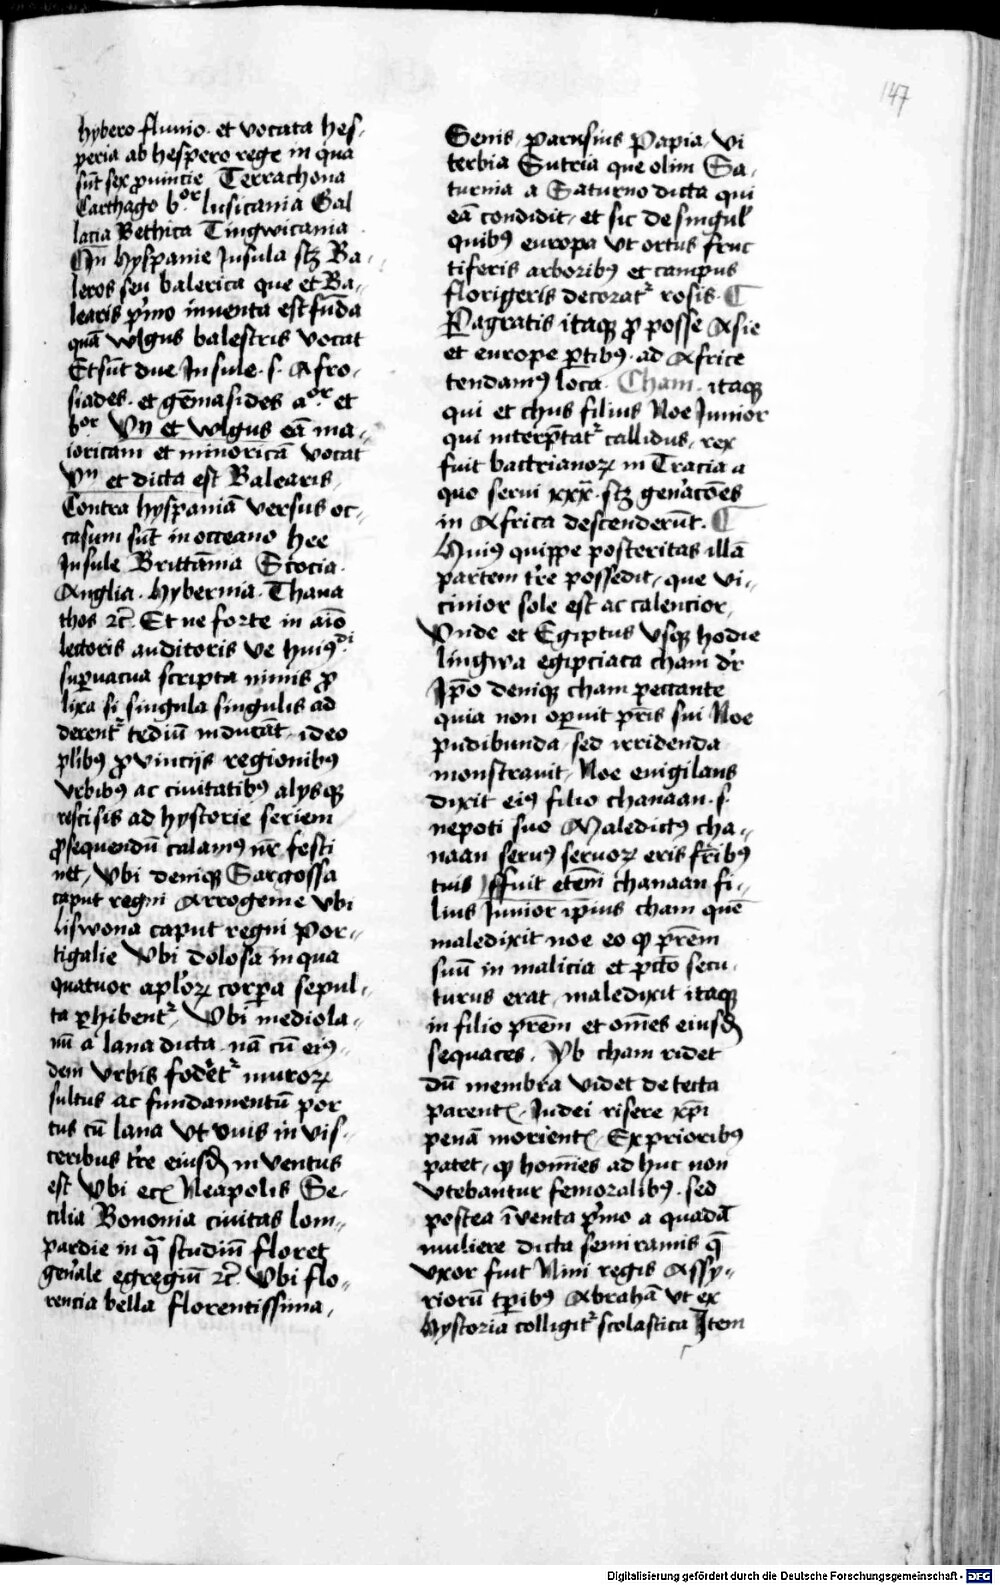 147
hybero fluuio · et vocata hes-
peria ab hespero rege in qua
sūt sex ꝓuincie Terrachona
Carthago bᵒʳ lusicania Gal
lacia Bethica Tingwicania
In hyspanie Insula scꝫ Ba-
leros seu balerica que et Ba-
learis pͥmo inuenta est funda
quā wlgus balestris vocat
Et sūt due Insule · s · Afro-
siades · et gēmasides aᵒʳ et
bᵒʳ Vn̄ et wlgus eā ma-
ioricam et minoricā vocat
Vn̄ et dicta est Balearis
Contra hyspaniā versus oc-
casum sūt in occeano hee
Insule Brittānia Scocia
Anglia · Hybernia · Thana
thos ⁊c̄ · Et ne forte in aīo
lectoris auditoris ve huiꝰᵈⁱ
suꝑuacua scripta nimis ꝓ
lixa si singula singulis ad
derentᷣ tediū inducāt · ideo
pl̄ibꝰ ꝓvincijs regionibꝰ
vrbibꝰ ac ciuitatibꝰ alysqꝫ
rescisis ad hystorie seriem
ꝓsequendū calamꝰ nr̄ festi
net, Vbi deniqꝫ Sargossa
caput regni Arrogenie vbi
liswona caput regni Por-
tigalie Vbi dolosa in qua
quatuor apl'oꝝ corꝑa sepul-
ta ꝑhibentᷣ, Vbi mediola-
nū a lana dicta · nā cū eiꝰ-
dem vrbis foderetᷣ muroꝝ
sultus ac fundamentū por
tus cū lana vt ouis in vis-
ceribus tr̄e eiusdꝫ inventus
est Vbi ecꝫ Neapolis Se-
cilia Bononia ciuitas lom-
pardie in qͣ studiū floret
gen̄ale egregiū ⁊c̄ · Vbi flo-
rencia bella florentissima,
Senis, parusius Papia, vi
terbia Sutria que olim Sa-
turnia a Saturno dicta qui
eā condidit, et sic de singul'
quibꝰ europa vt ortus fruc
tiferis arboribꝰ et campus
florigeris decoratᷣ rosis · ¶
Pagratis itaqꝫ ꝓ posse Asie
et europe ꝑtibꝰ · ad Africe
tendamꝰ loca · Cham · itaqꝫ
qui et chus filius Noe Iunior
qui interp̄tatᷣ callidus, rex
fuit bactrianoꝝ in Tracia a
quo serui xxx · scꝫ gen̄acōes
in Africa descenderūt · ¶
Huiꝰ quippe posteritas illā
partem tr̄e possedit, que vi-
cinior sole est ac calencior,
Vnde et Egiptus vsqꝫ hodie
lingwa egipciaca cham dr̄
Ip̄o deniqꝫ cham peccante
quia non oꝑuit pr̄is sui Noe
pudibunda, sed irridenda
monstrauit, Noe euigilans
dixit eiꝰ filio chanaan · s ·
nepoti suo Maledictꝰ cha-
naan seruꝰ seruoꝝ eris fr̄ibꝰ
tuis Ffuit eteni chanaan fi-
lius Iunior ip̄ius cham quē
maledixit noe eo ꝙ pr̄em
suū in malicia et pctō secu-
turus erat, maledixit itaqꝫ
in filio pr̄em et om̄es eiusdꝫ
sequaces · Vb cham ridet
dū membra videt detecta
parentꝫ, Iudei risere xp̄i
penā morientꝫ, Ex prioribꝰ
patet, ꝙ hom̄ies ad huc non
vtebantur femoralibꝰ · sed
postea īventa pͥmo a quadā
muliere dicta semiramis q̄
vxor fuit Nini regis Assy-
riorū tꝑibꝰ Abrahā vt ex
Hystoria colligitᷣ scolastica Item
Digitalisierung gefördert durch die Deutsche Forschungsgemeinschaft - DFG